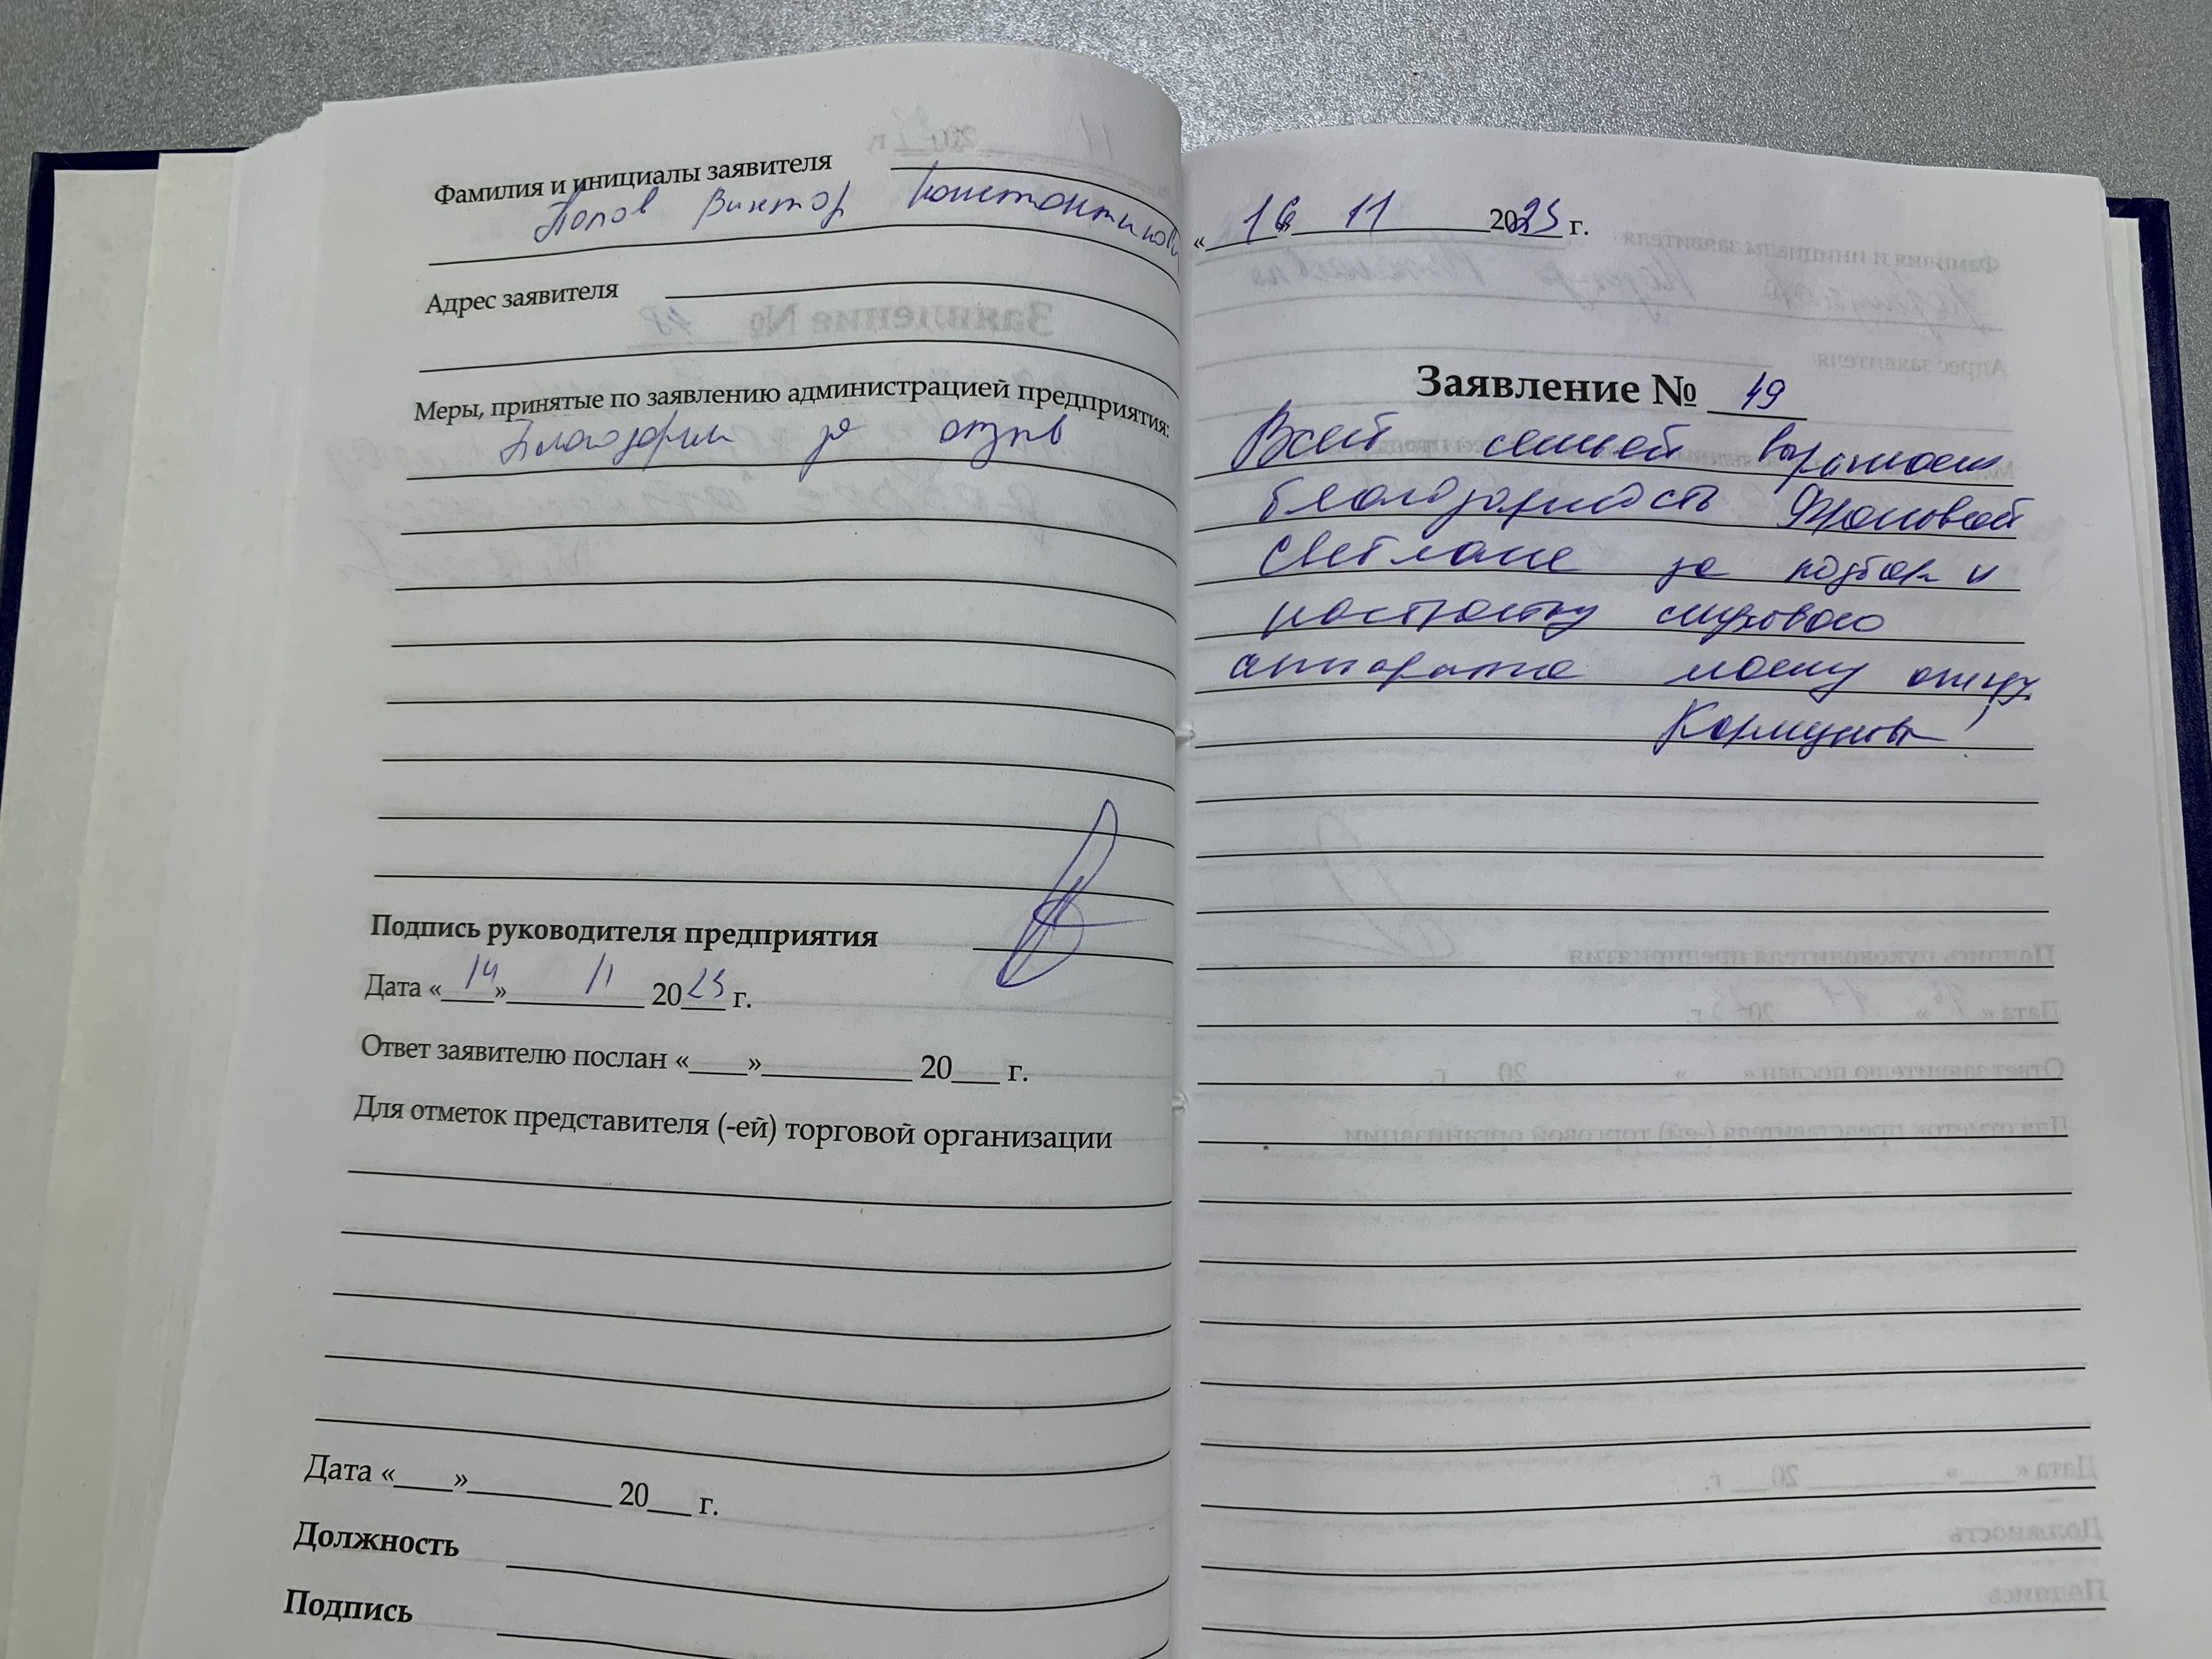 Фамилия и инициалы заявителя
Попов Виктор Константинови
Адрес заявителя
Меры, принятые по заявлению администрацией предприятия:
Благодарим за отзыв
Подпись руководителя предприятия
Дата «14» 11 2023 г.
Ответ заявителю послан «____»__________ 20___ г.
Для отметок представителя (-ей) торговой организации
Дата «____»__________ 20___ г.
Должность
Подпись
«16» 11 2023 г.
Заявление № 49
Всей семьей выражаем
благодарность
Светлане за подбор и
настройку слухового
аппарата моему отцу.
Кормуновы